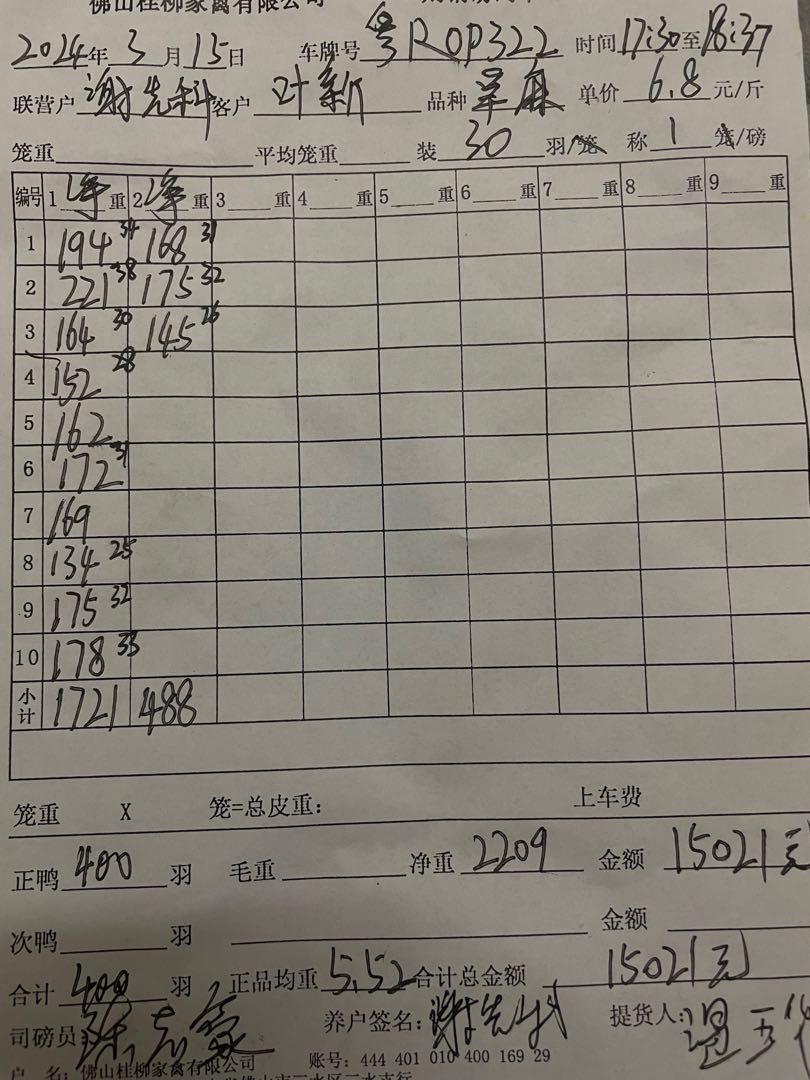 佛山桂柳家禽有限公司
2024年3月15日 车牌号 粤R0P322 时间17:30至18:37
联营户 谢先科 客户 叶新 品种 单价 6.8 元/斤
笼重 平均笼重 装 30 羽/笼 称 1 笼/磅
编号 1 净 重 2 净 重 3 重 4 重 5 重 6 重 7 重 8 重 9 重
1 194 34 168 31
2 221 38 175 32
3 164 30 145 26
4 152 28
5 162
6 172 31
7 169
8 134 25
9 175 32
10 178 33
小计 1721 488
笼重 X 笼=总皮重: 上车费
正鸭 400 羽 毛重 净重 2209 金额 15021元
次鸭 羽 金额
合计 400 羽 正品均重 5.52 合计总金额 15021元
司磅员: 养户签名: 谢先科 提货人:
户 名: 佛山桂柳家禽有限公司 账号: 444 401 010 400 169 29